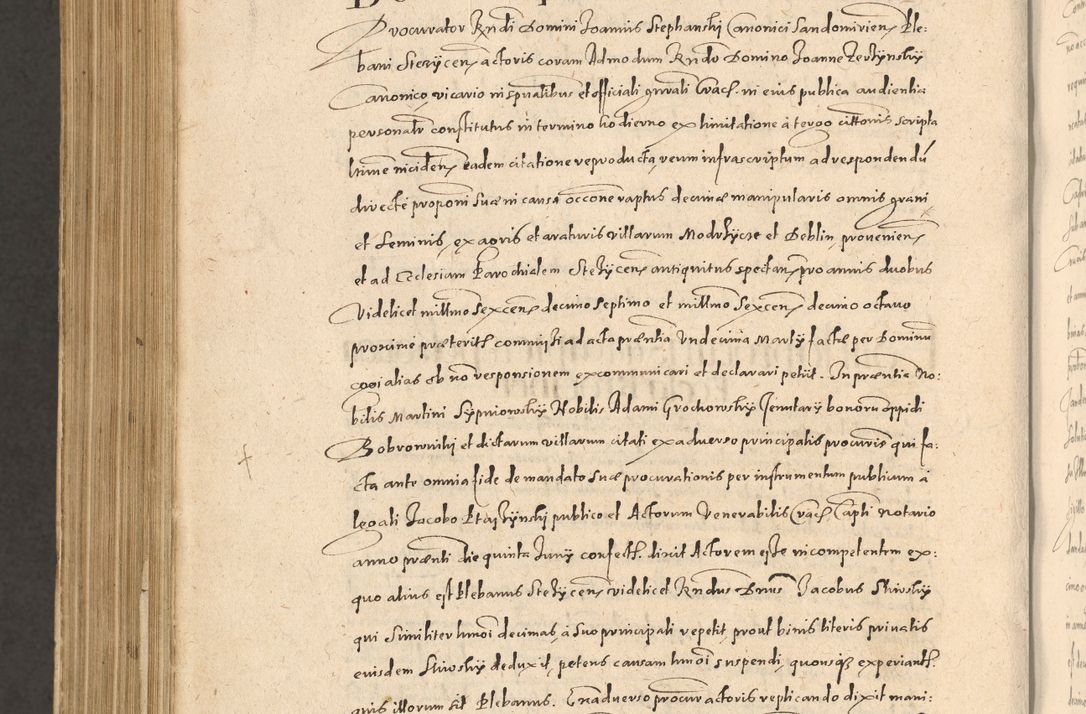 Procurator Rndi Domini Joannis Stephanski Canonici Sandomirien Ple:
bani Stezycen actoris coram Admodum Rndo Domino Joanne Zerzynsky
Canonico, vicario in spualibus et officiali gnrali Crac. in eius publica audientia
personalr constitutus in termino hodierno ex limitatione à tergo cittonis scripta
lrime inciden eadem citatione reproducta, reum infrascriptum ad respondendũ
directè proponi suæ in causa occone raptus decimæ manipularis omnis grani
et Seminis, ex agris et araturis villarum Modrzyce et Deblin, provenien
et ad Ecclesiam Parochialem Stezycen antiquitus spectan, pro annis duobus
Videlicet millmo sexcen decimo septimo et millmo Sexcen decimo octavo
proximè præterit commissi ad acta præntia Undecima Martij factæ per Dominũ
cogi alias ob nō responsionem excommunicari et declarari petijt. In præntia No:
bilis Martini Sypniowsky Nobilis Adami Grochowsky Tenutarij bonorũ oppidi
Bobrowniki et dictarum villarum citati ex adverso principalis procuris qui fa:
cta ante omnia fide de mandato suæ procurationis per instrumentum publicum à
legali Jacobo Ptaszynski publico et Actorum Venerabilis Crac Capli Notario
anno prænti die quinta Junij confect. dixit Actorem esse incompetentem ex:
quo alius est Plebanus Stezycen videlicet Rndus Dnus Jacobus Skiwsky
qui similiter hmoi decimas, à suo principali repetit, prout binis literis privatis
eiusdem Skiwsky deduxit, petens causam hmoi suspendi, quousq experiant.
quis illorum sit Plebanus. Ex adverso procur actoris replicando dixit mani: